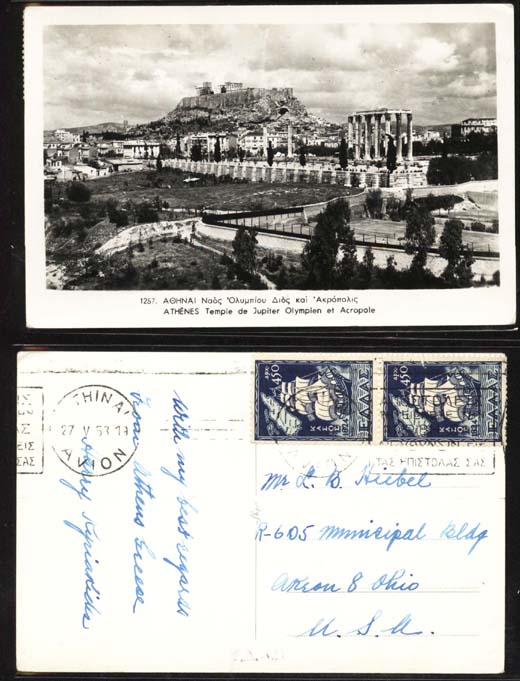 1257. ΑΘΗΝΑΙ Ναὸς Ὀλυμπίου Διὸς καὶ Ἀκρόπολις
ATHÈNES Temple de Jupiter Olympien et Acropole
27 V 53 19
AVION
ΤΑΣ ΕΠΙΣΤΟΛΑΣ ΣΑΣ
450
ΚΑΣΟΣ
ΕΛΛΑΣ
450
ΚΑΣΟΣ
ΕΛΛΑΣ
with my best regards
from Athens Greece
Harry
Mr L. B. Hiebel
R-605 Municipal Bldg
Akron 8 Ohio
U. S. A.